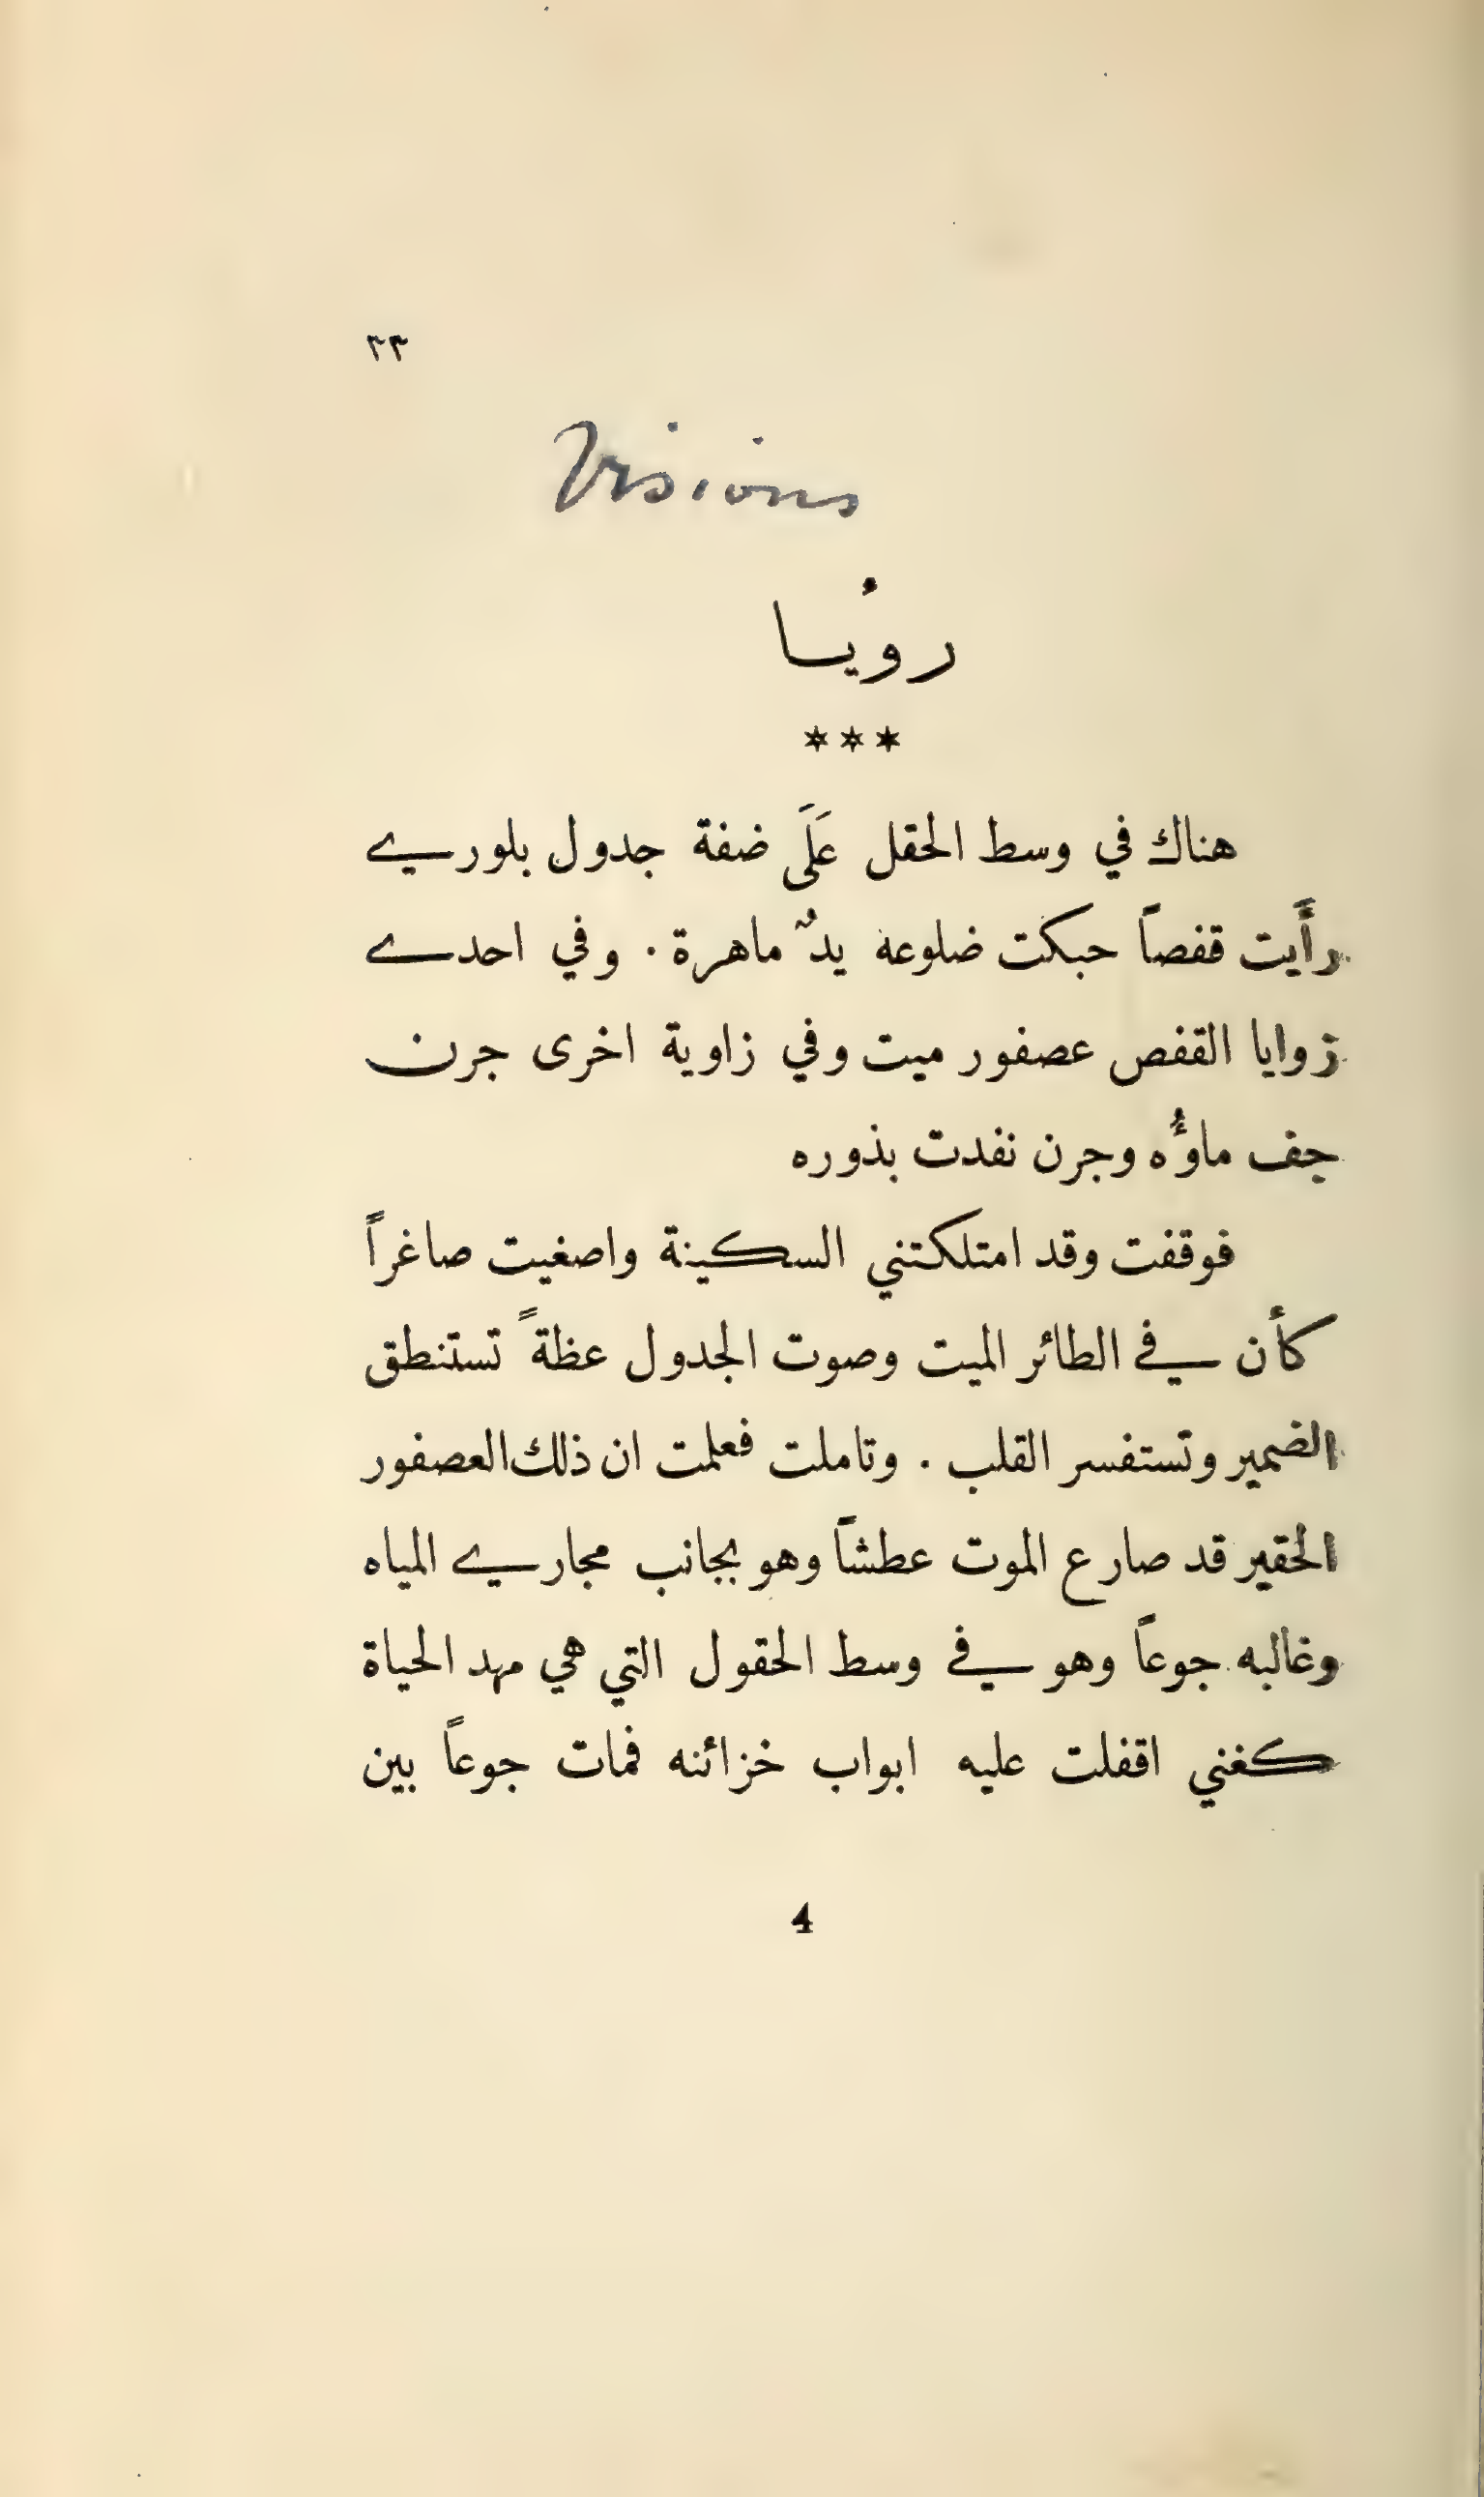 ٣٣
Visions
رؤيا
***
هناك في وسط الحقل عَلَى ضفة جدول بلوري
رأَيت قفصاً حبكت ضلوعه يدٌ ماهرة . وفي احدى
زوايا القفص عصفور ميت وفي زاوية اخرى جرن
جف ماؤُه وجرن نفدت بذوره
فوقفت وقد امتلكتني السكينة واصغيت صاغراً
كأن في الطائر الميت وصوت الجدول عظةً تستنطق
الضمير وتستفسر القلب . وتاملت فعلمت ان ذلك العصفور
الحقير قد صارع الموت عطشاً وهو بجانب مجاري المياه
وغالبه جوعاً وهو في وسط الحقول التي هي مهد الحياة
كغني اقفلت عليه ابواب خزائنه فمات جوعاً بين
4